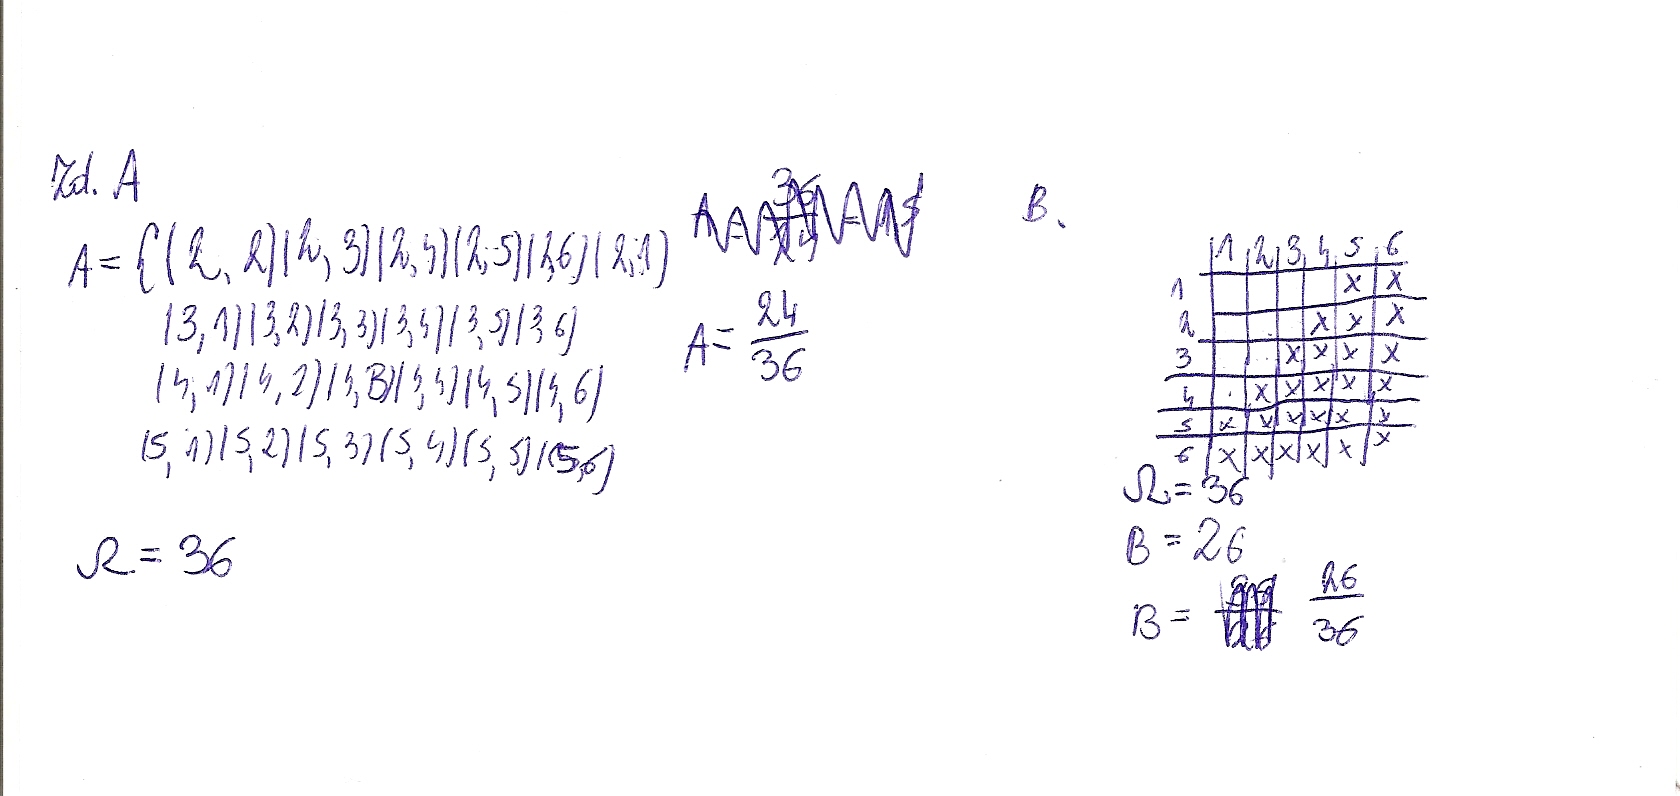 Zd. A
A = {(2, 2)(2, 3)(2, 4)(2, 5)(2,6)(2,1)
(3, 1)(3,2)(3, 3)(3,4)(3, 5)(3, 6)
(4, 1)(4, 2)(4, 3)(4, 4)(4, 5)(4, 6)
(5, 1)(5, 2)(5, 3)(5, 4)(5, 5)(5,6)
Ω = 36
A = 24
36
B.
1 2 3 4 5 6
1 x x
2 x x x
3 x x x x
4 x x x x x
5 x x x x x x
6 x x x x x x
Ω = 36
B = 26
B = 26
36